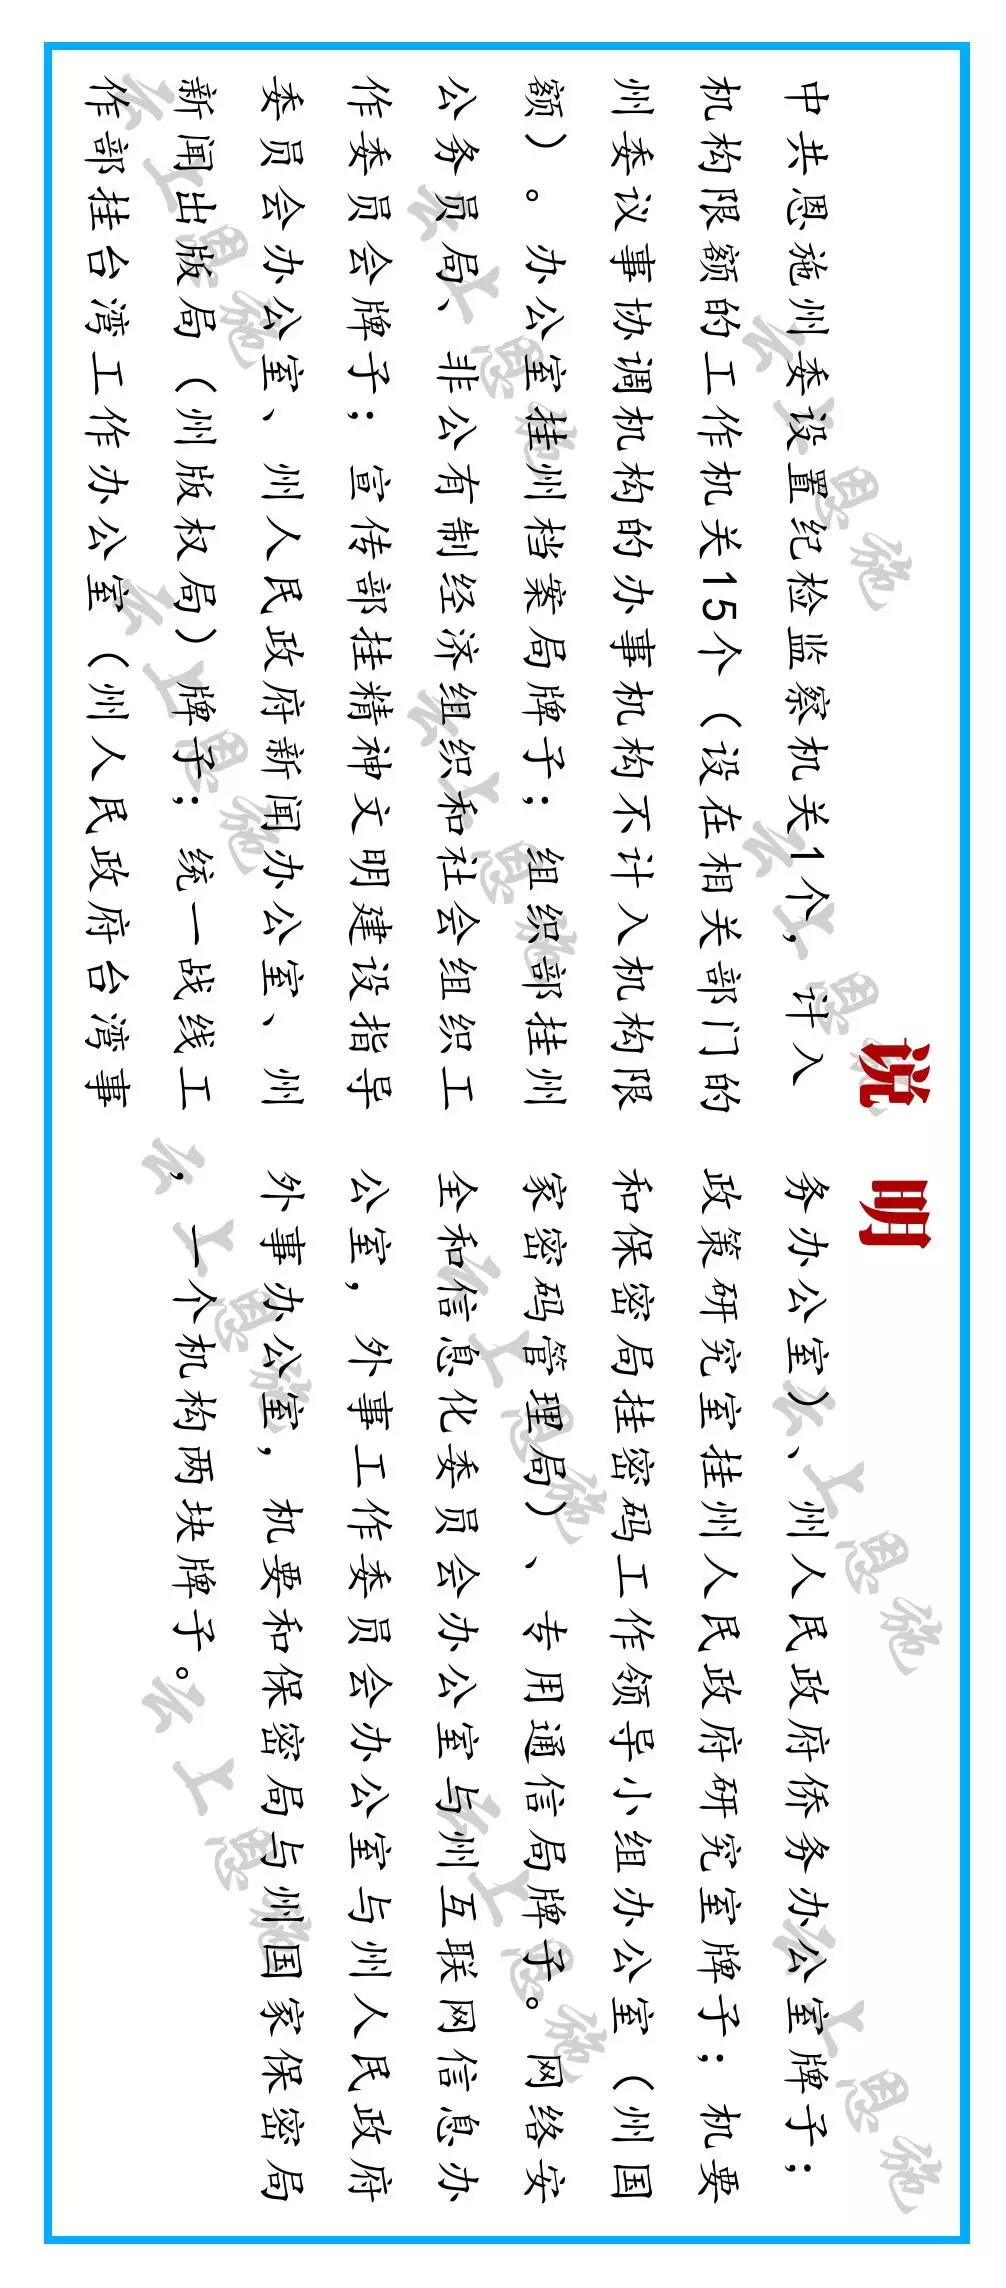 说 明
中共恩施州委设置纪检监察机关1个，计入
机构限额的工作机关15个（设在相关部门的
州委议事协调机构的办事机构不计入机构限
额）。办公室挂州档案局牌子；组织部挂州
公务员局、非公有制经济组织和社会组织工
作委员会牌子；宣传部挂精神文明建设指导
委员会办公室、州人民政府新闻办公室、州
新闻出版局（州版权局）牌子；统一战线工
作部挂台湾工作办公室（州人民政府台湾事
务办公室）、州人民政府侨务办公室牌子；
政策研究室挂州人民政府研究室牌子；机要
和保密局挂密码工作领导小组办公室（州国
家密码管理局）、专用通信局牌子。网络安
全和信息化委员会办公室与州互联网信息办
公室，外事工作委员会办公室与州人民政府
外事办公室，机要和保密局与州国家保密局
，一个机构两块牌子。
云上恩施
云上恩施
云上恩施
云上恩施
云上恩施
云上恩施
云上恩施
云上恩施
云上恩施
云上恩施
云上恩施
云上恩施